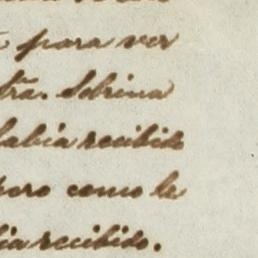 para ver
tra. Sobrina
había recibido
pero como le
recibido.